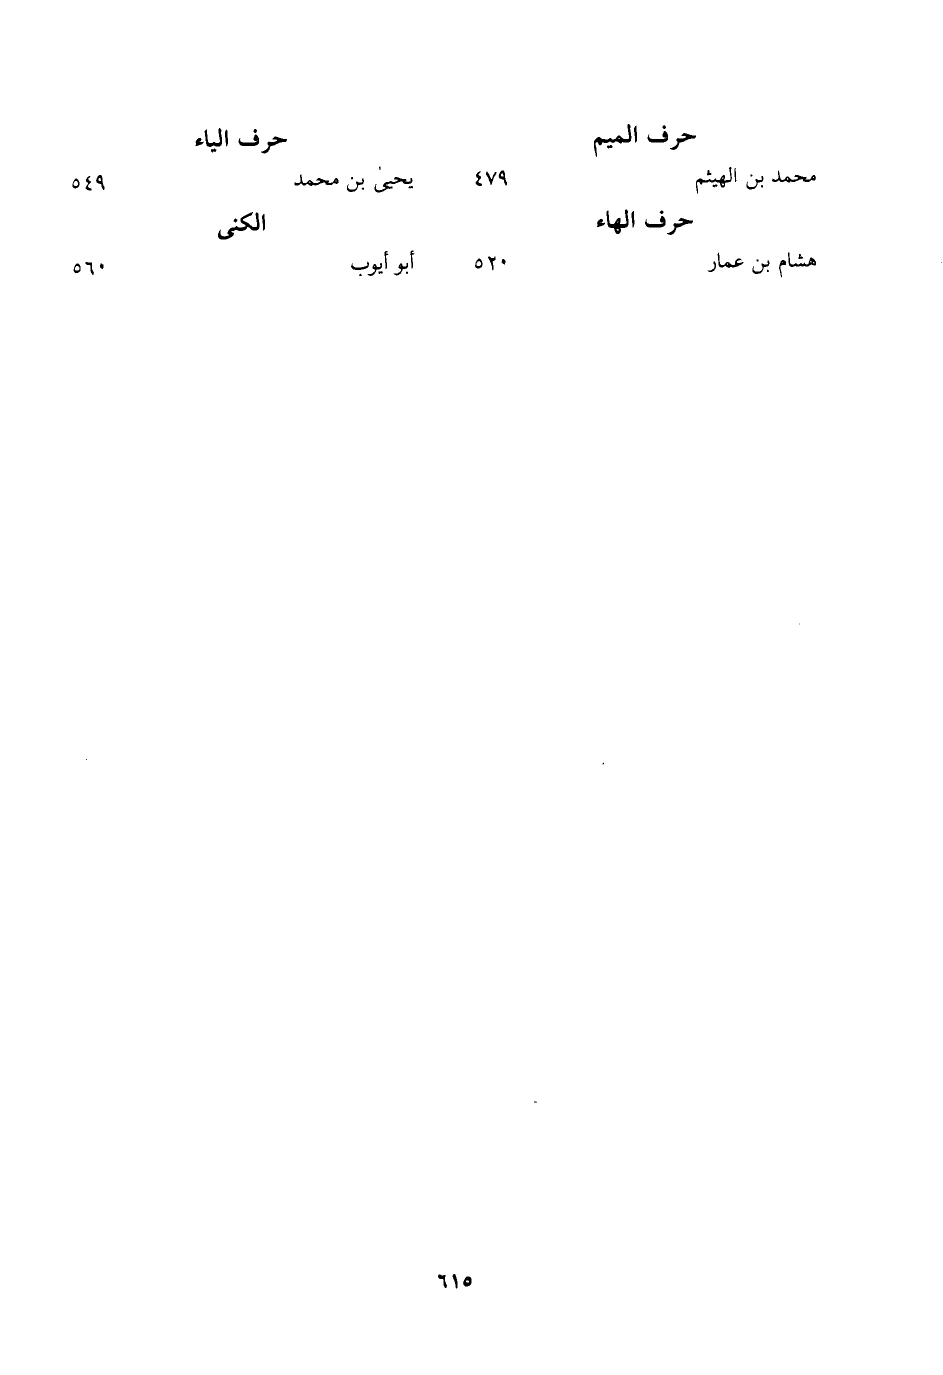 حرف الميم
محمد بن الهيثم ٤٧٩
حرف الهاء
هشام بن عمار ٥٢٠
حرف الياء
يحيىٰ بن محمد ٥٤٩
الكنى
أبو أيوب ٥٦٠
٦١٥